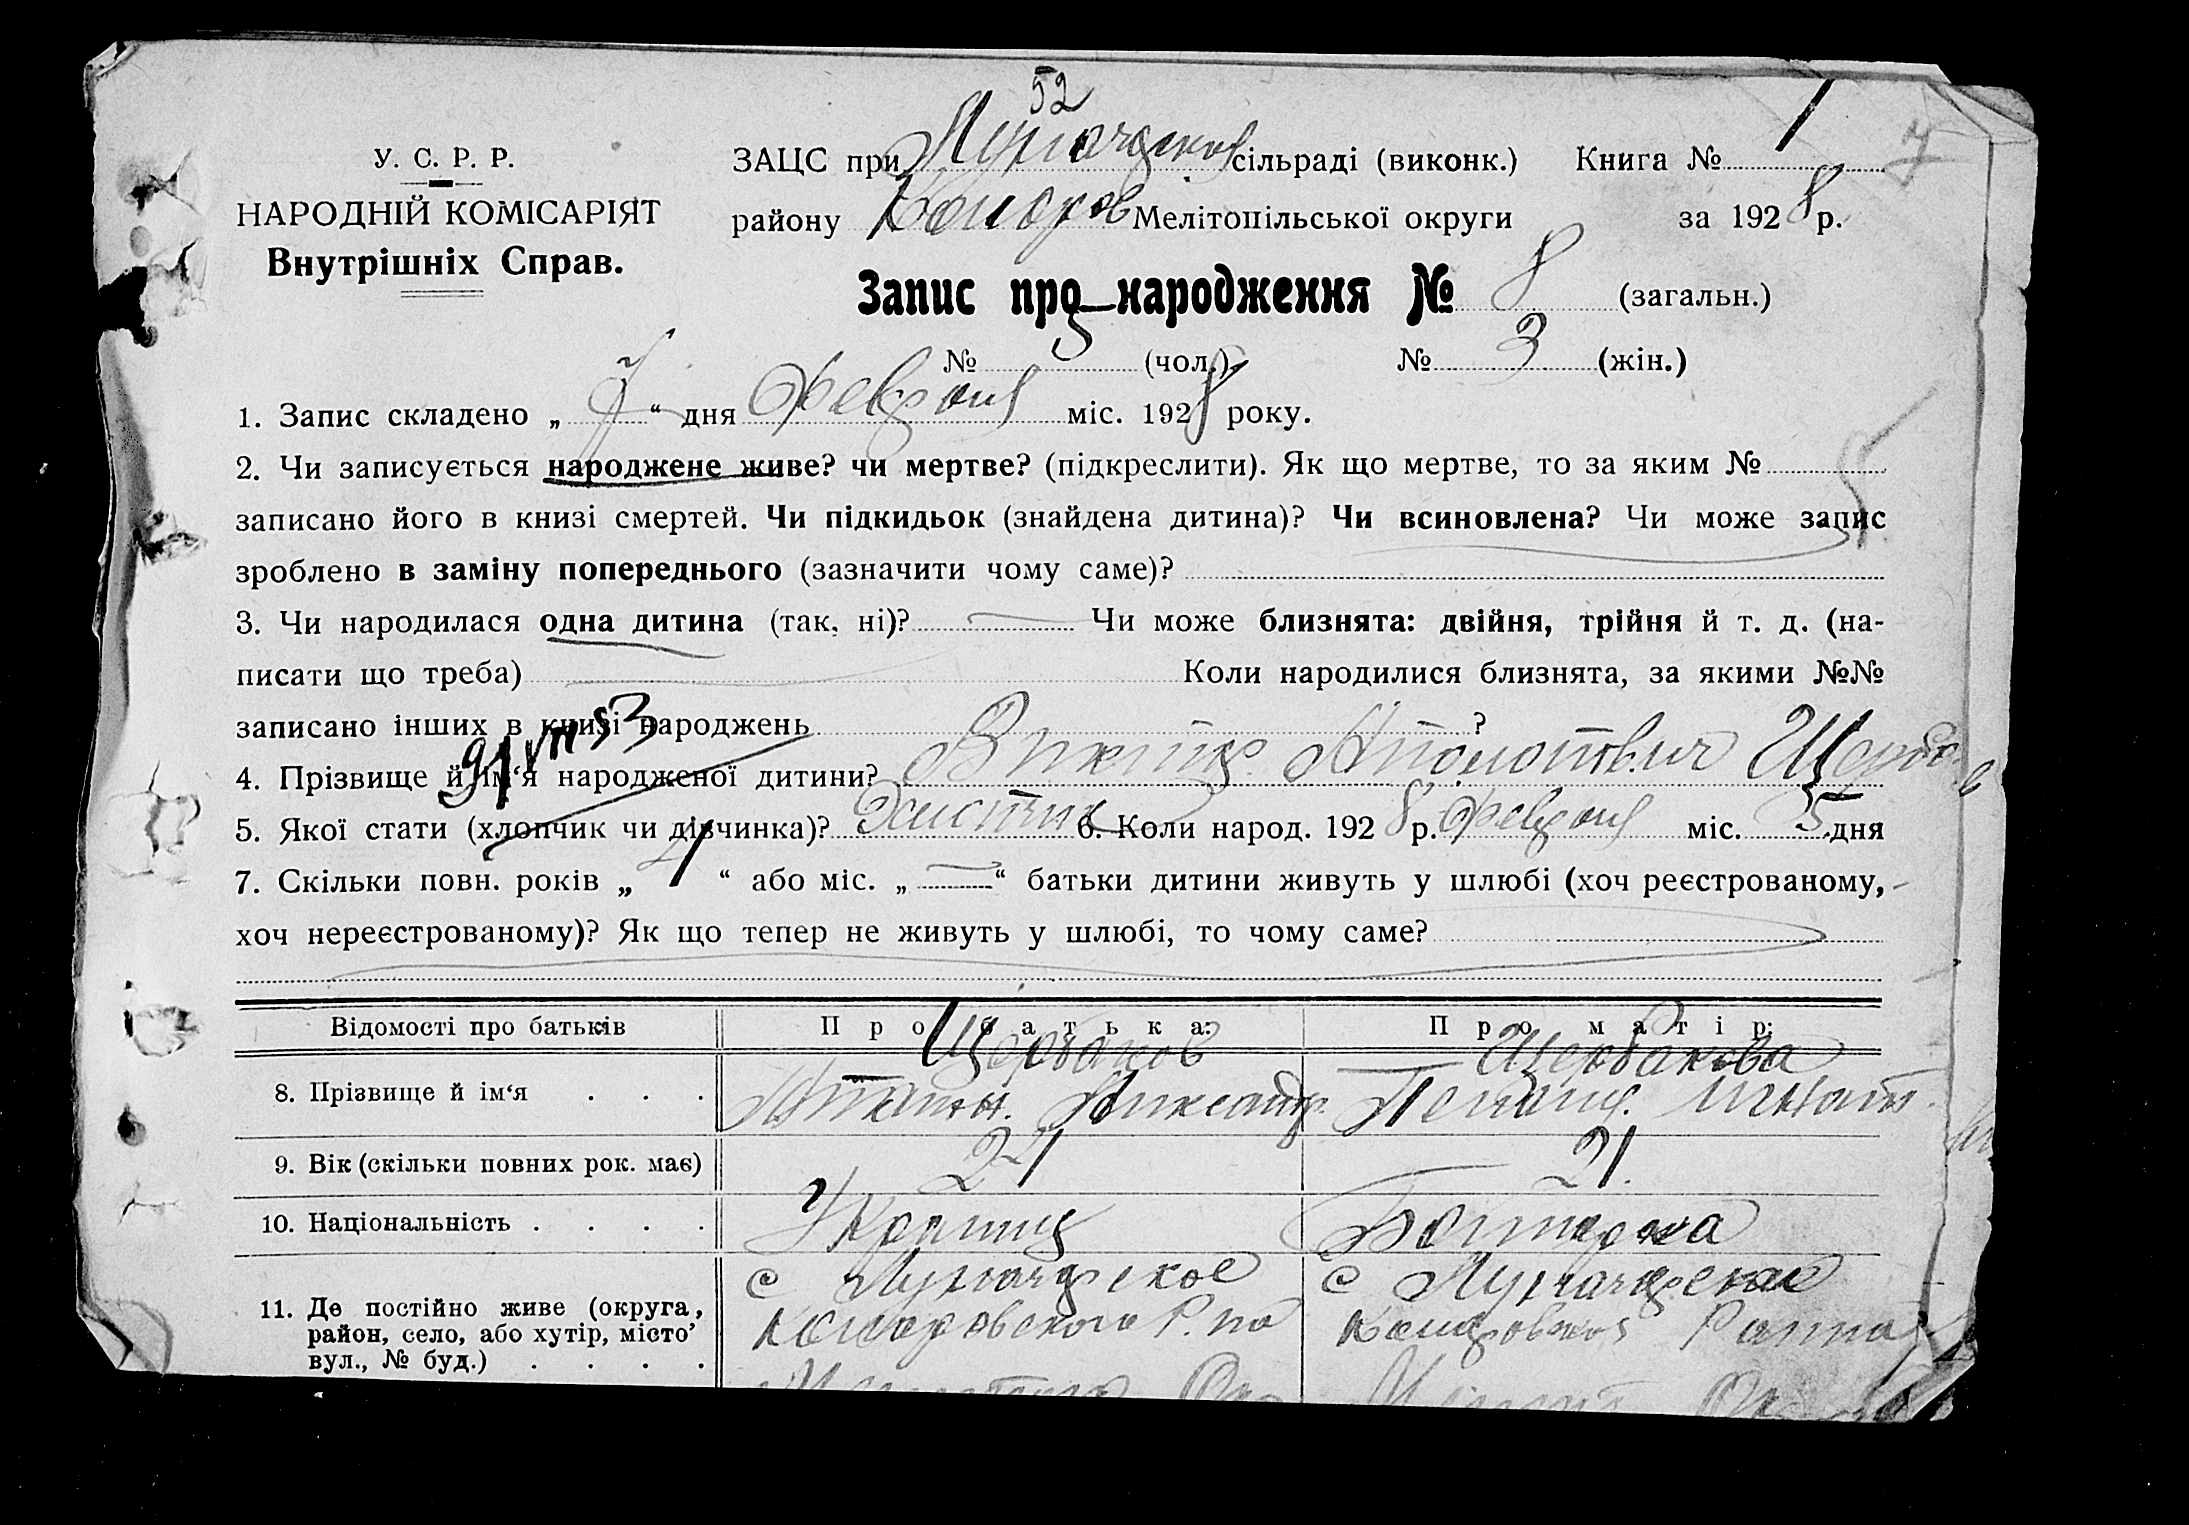 52
У. С. Р. Р.
НАРОДНІЙ КОМІСАРІЯТ
Внутрішніх Справ.
ЗАЦС при сільраді (виконк.) Книга № 1
району Мелітопільської округи за 1928 р.
Запис про народження № 8 (загальн.)
№ 5 (чол.) № 3 (жін.)
1. Запис складено „ 7 “ дня февраля міс. 1928 року.
2. Чи записується народжене живе? чи мертве? (підкреслити). Як що мертве, то за яким №
записано його в книзі смертей. Чи підкидьок (знайдена дитина)? Чи всиновлена? Чи може запис
зроблено в заміну попереднього (зазначити чому саме)?
3. Чи народилася одна дитина (так, ні)? Чи може близнята: двійня, трійня й т. д. (на-
писати що треба) Коли народилися близнята, за якими №№
записано інших в книзі народжень ?
4. Прізвище й ім‘я народженої дитини? Виктор
5. Якої стати (хлопчик чи дівчинка)? 6. Коли народ. 1928 р. февраля міс. 5 дня
7. Скільки повн. років „ 1 “ або міс. „ — “ батьки дитини живуть у шлюбі (хоч реєстрованому,
хоч нереєстрованому)? Як що тепер не живуть у шлюбі, то чому саме?
Відомості про батьків Про батька: Про матір:
Щербаков Щербакова
8. Прізвище й ім‘я . . . Игнат.
9. Вік (скільки повних рок. має) 21 21.
10. Національність . . . . Украинец Болгарка
11. Де постійно живе (округа, с с
район, село, або хутір, місто’ Комаровского Р-на
вул., № буд.) . . . .